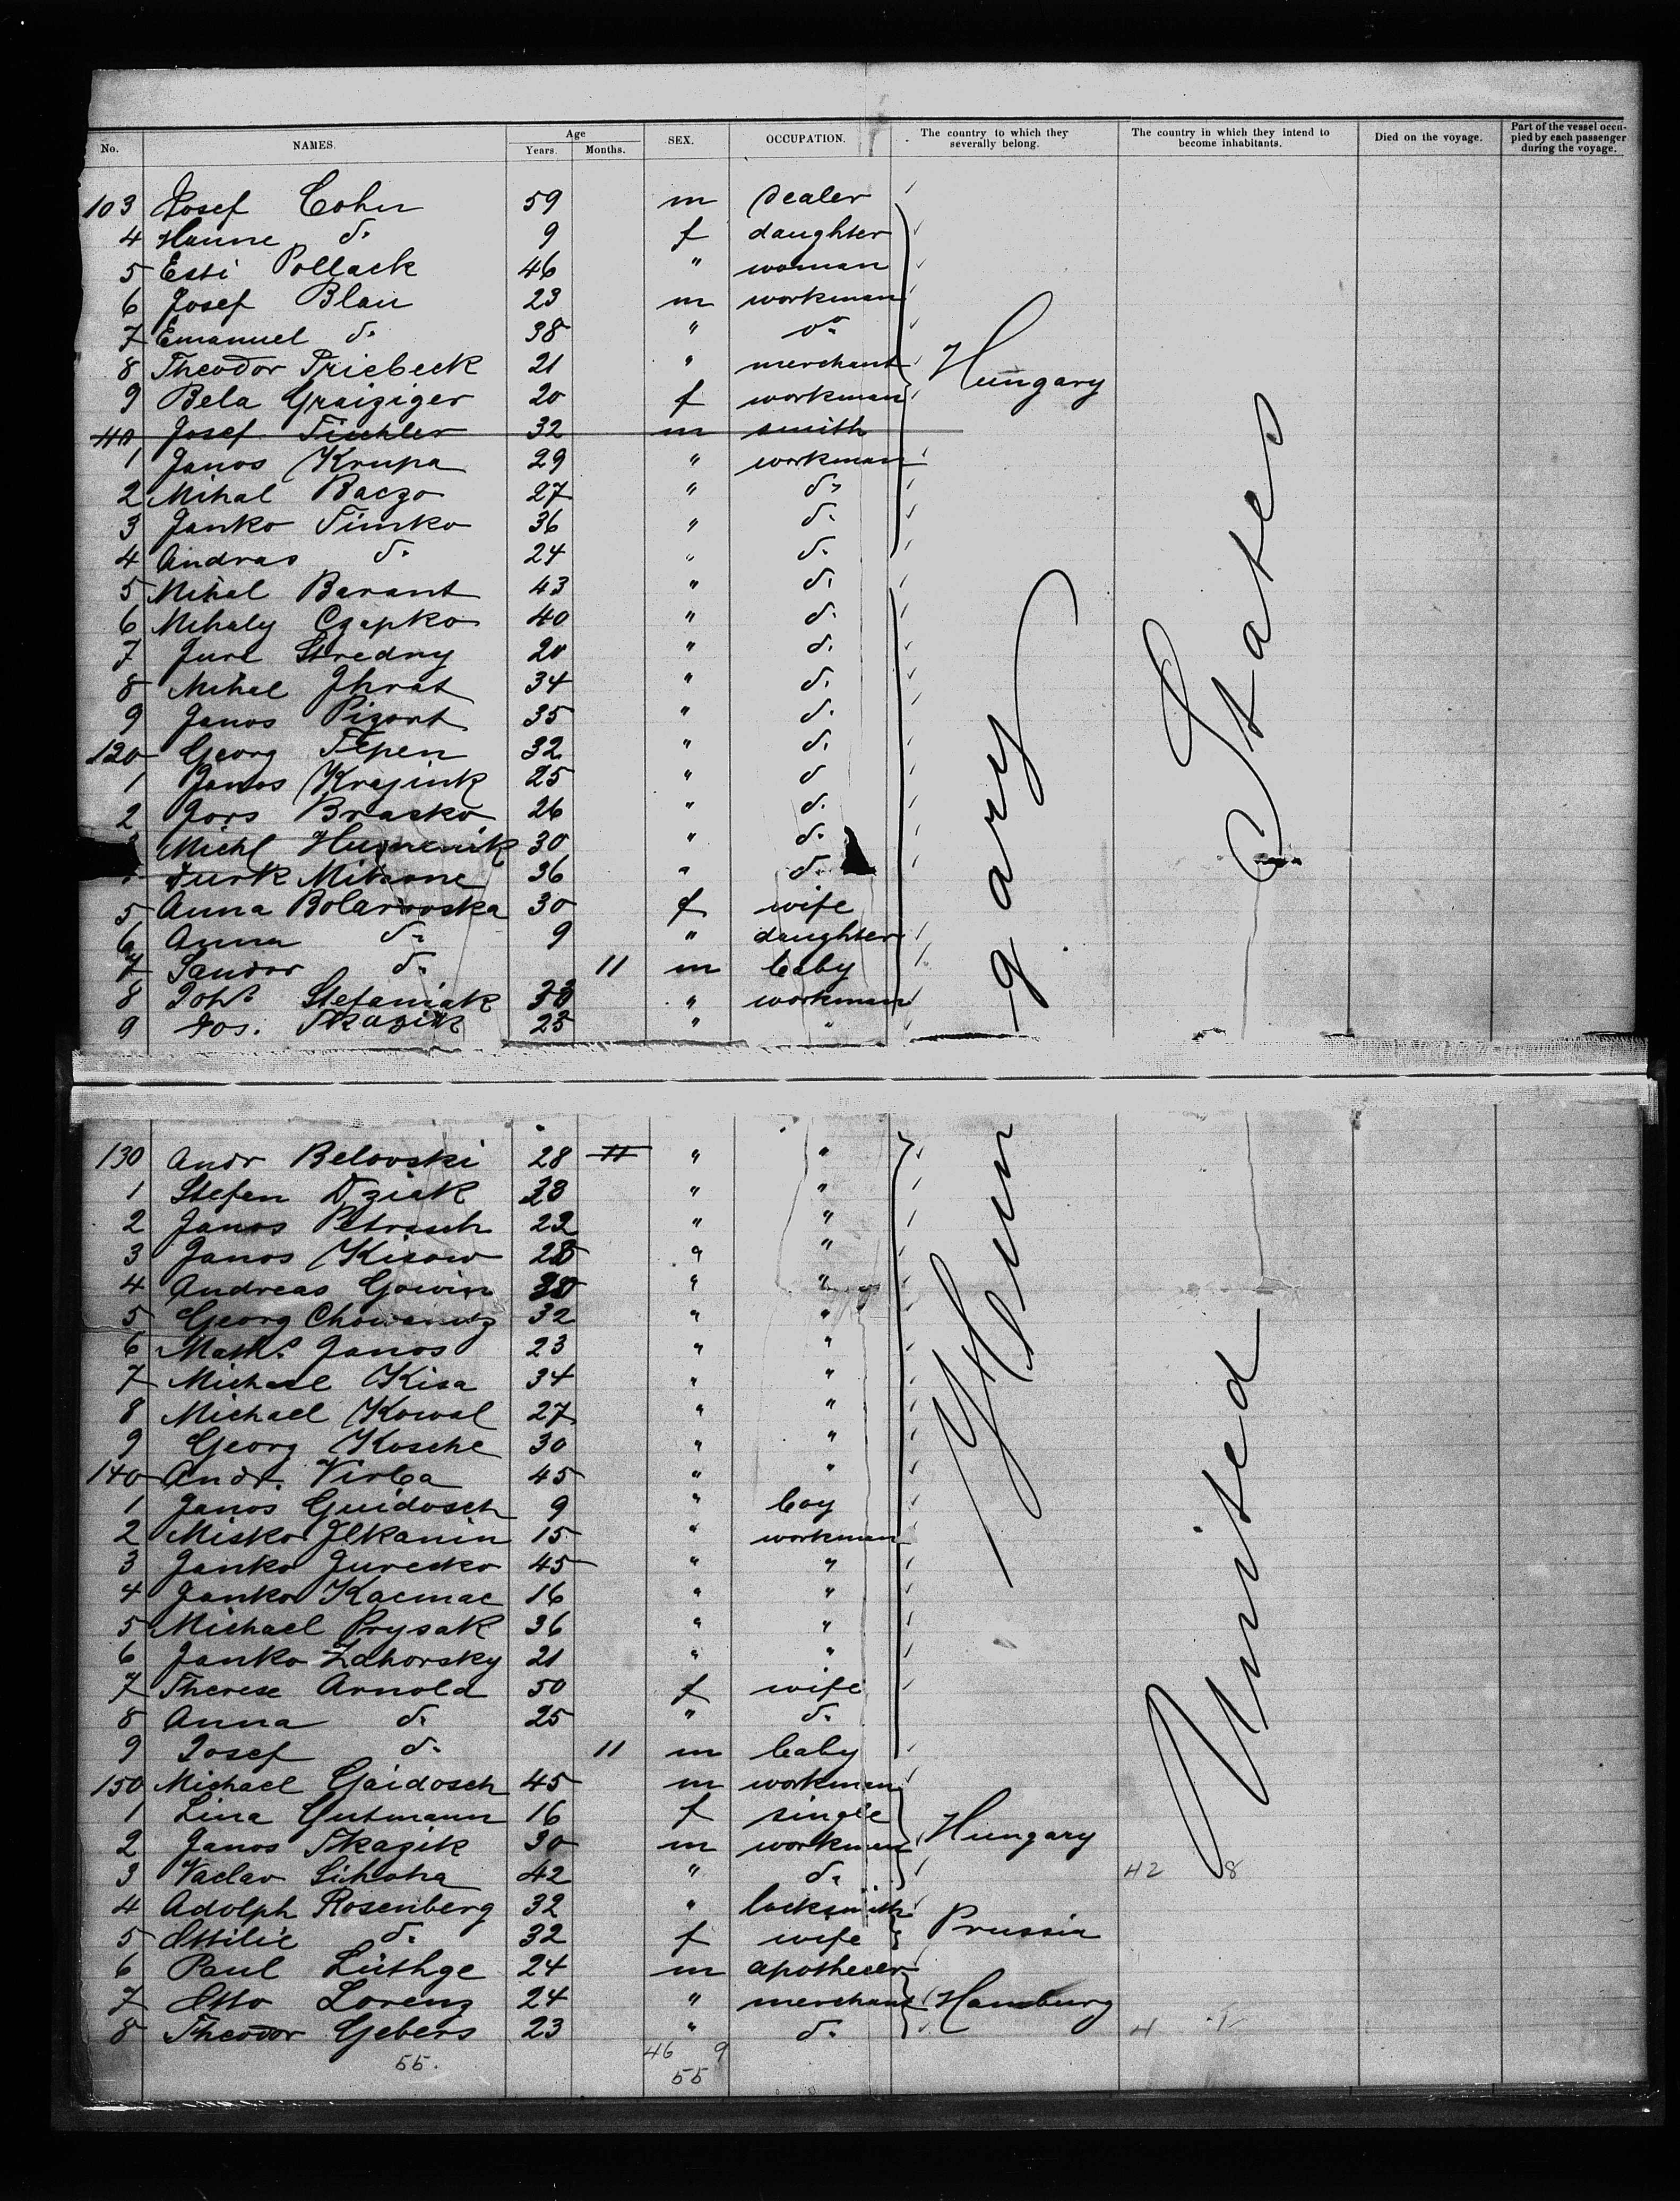 No. NAMES. Age Years. Months. SEX. OCCUPATION. The country to which they severally belong. The country in which they intend to become inhabitants. Died on the voyage. Part of the vessel occupied by each passenger during the voyage.
103 Josef Cohn 59 m Dealer
4 Hanne do. 9 f daughter
5 Esti Pollack 46 " woman
6 Josef Blau 23 m workman
7 Emanuel do. 38 " do.
8 Theodor Priebeck 21 " merchant Hungary
9 Bela Graiziger 20 f workman
110 Josef Tischler 32 m smith
1 Janos Krupa 29 " workman
2 Mihal Baczo 27 " do.
3 Janko Timko 36 " do.
4 Andras do. 24 " do.
5 Mihal Barant 43 " do.
6 Mihaly Czapko 40 " do.
7 Jure Stredny 20 " do.
8 Mihal Ihnat 34 " do.
9 Janos Pizont 35 " do.
120 Georg Tepen 32 " do.
1 Janos Krajink 25 " do
2 Jors Brasko 26 " do.
Michl 30 " do.
Jurk 36 " do.
5 Anna Bolarovska 30 f wife
6 Anna do. 9 " daughter
7 Sandor do. 11 m baby
8 Joh. Stefaniak 33 " workman
9 Jos. Tkazik 23 " "
130 Andr Belovski 28 11 " "
1 Stefan Dziak 23 " "
2 Janos Petrasch 22 " "
3 Janos Kisow 28 " "
4 Andreas Gowin 38 " "
5 Georg Chowanitz 32 " "
6 Math. Janos 23 " "
7 Michael Kisa 34 " "
8 Michael Kowal 27 " "
9 Georg Kosche 30 " "
140 Andr. Virba 45 " "
1 Janos Guidosch 9 " boy
2 Misko Ilkanin 15 " workman
3 Janko Jurecko 45 " "
4 Janko Kacmac 16 " "
5 Michael Prysak 36 " "
6 Janko Zahorsky 21 " "
7 Therese Arnold 50 f wife
8 Anna do. 25 " do.
9 Josef do. 11 m baby
Hungary
United States
150 Michael Gaidosch 45 m workman
1 Lina Gutmann 16 f single
2 Janos Tkazik 30 m workman Hungary
3 Vaclav Sihoha 42 " do. 42 8
4 Adolph Rosenberg 32 " locksmith
5 Ottilie do. 32 f wife Prussia
6 Paul Lüthge 24 m apothecer
7 Otto Lorenz 24 " merchant Hamburg
8 Theodor Gebers 23 " do. 4 1
55. 46 9
55